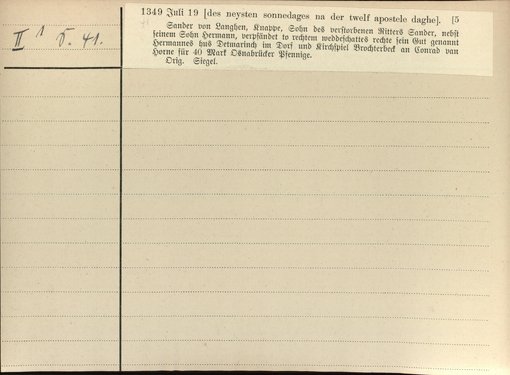 1349 Juli 19 [des neysten sonnedages na der twelf apostele daghe]. [5
Sander von Langhen, Knappe, Sohn des verstorbenen Ritters Sander, nebst
seinem Sohn Hermann, verpfändet to rechtem weddeschattes rechte sein Gut genannt
Hermannes hus Detmarinch im Dorf und Kirchspiel Brochterbeck an Conrad van
Horne für 40 Mark Osnabrücker Pfennige.
Orig. Siegel.
II 1 S. 41.